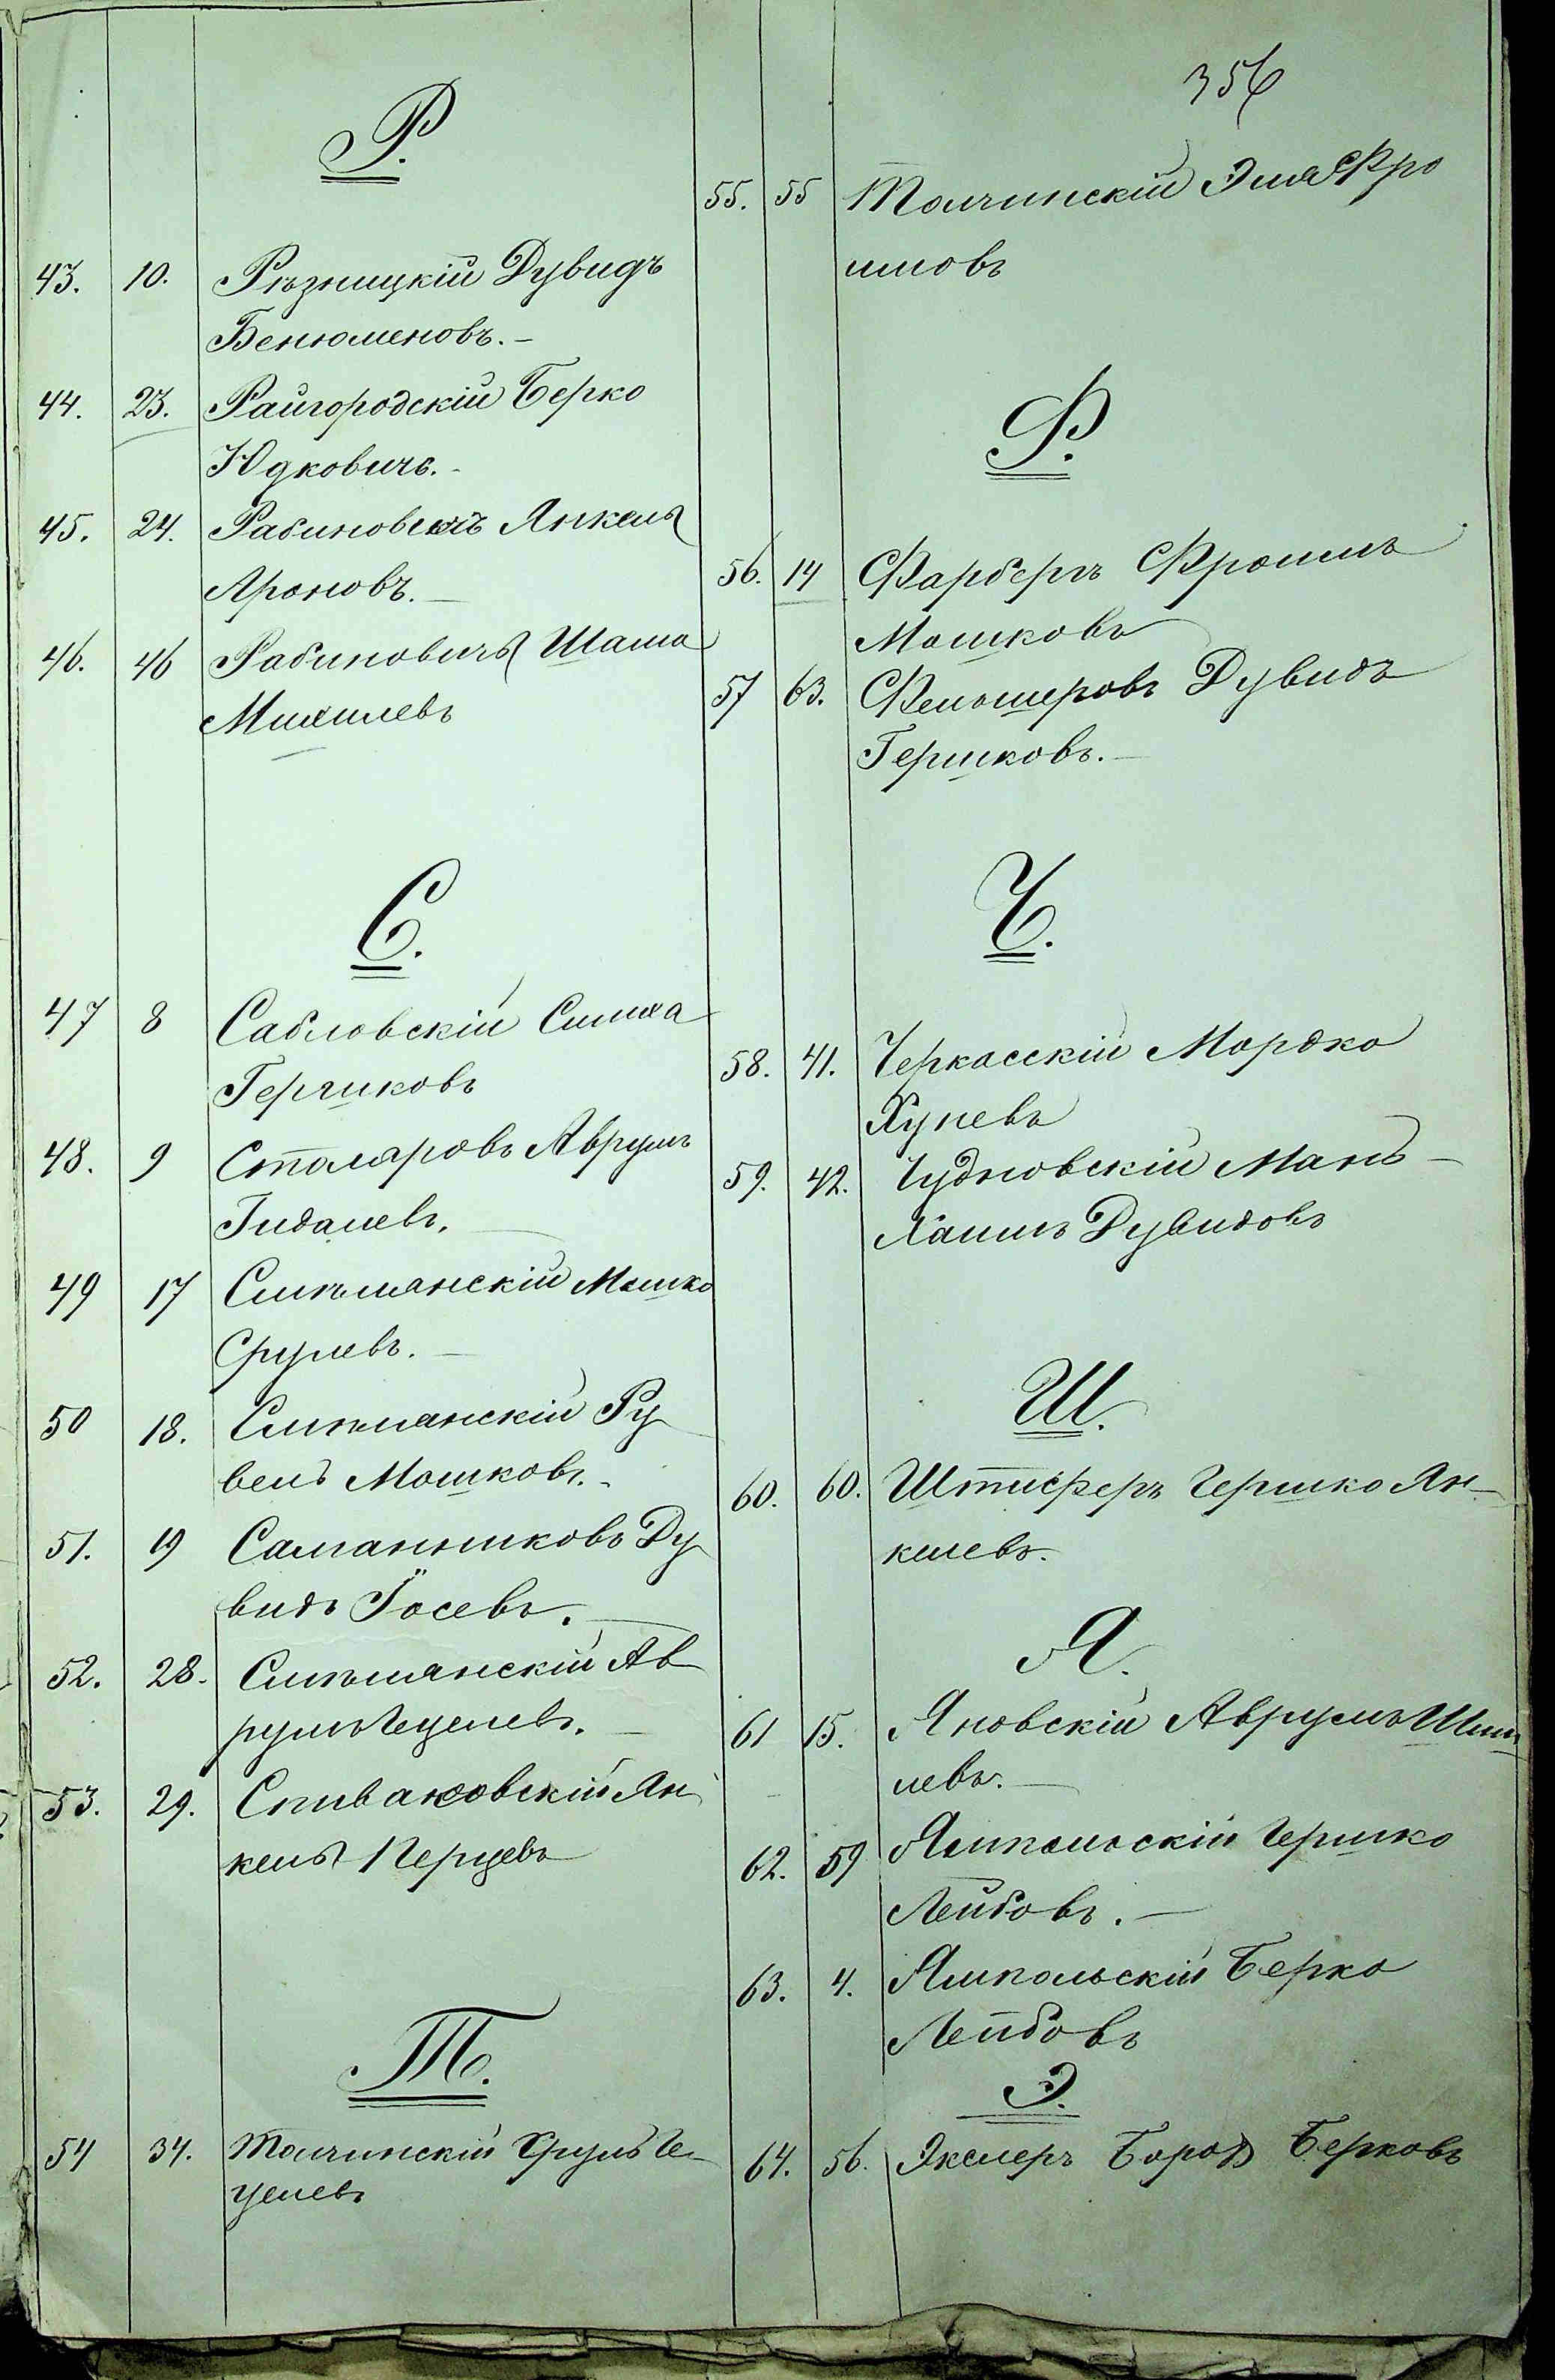 Р.
43. 10. Рѣзницкій Дувидъ
Бенюменовъ.-
44. 23. Райгородскій Берко
Юдковичъ.-
45. 24. Рабиновичъ Янкель
Ароновъ.-
46. 46 Рабиновичъ Шама
Михилевъ
С.
47 8 Сабловскій Симха
Гершковъ
48. 9 Столяровъ Аврумъ
Гидалевъ.
49 17 Смѣлянскій Мошко
Срулевъ.-
50 18. Смѣлянскій Ру
велъ Мошковъ.-
51. 19 Саманниковъ Ду
видъ Іосевъ.-
52. 28. Смѣлянскій Ав
румъ Гецелевъ.-
53. 29. Спиваковскій Ян
кель Перцевъ
Т.
54 34. Толчинскій Срулъ Ге-
целевъ
356
55. 55 Толчинскій Эля Фро
имовъ
Ф.
56. 14 Фарберъ Фроимъ
Мошковъ
57 63. Фельшеровъ Дувидъ
Гершковъ.-
Ч.
58. 41. Черкасскій Мордко
Хуневъ
59. 42. Чудновскій Манъ-
Хаимъ Дувидовъ
Ш.
60. 60. Штиферъ Гершко Ян-
келевъ.
Я.
61 15. Яновскій Аврумъ Шми
левъ.-
62. 59 Ямпольскій Гершко
Лейбовъ.-
63. 4. Ямпольскій Берко
Лейбовъ
Э.
64. 56. Экслеръ Борох Берковъ